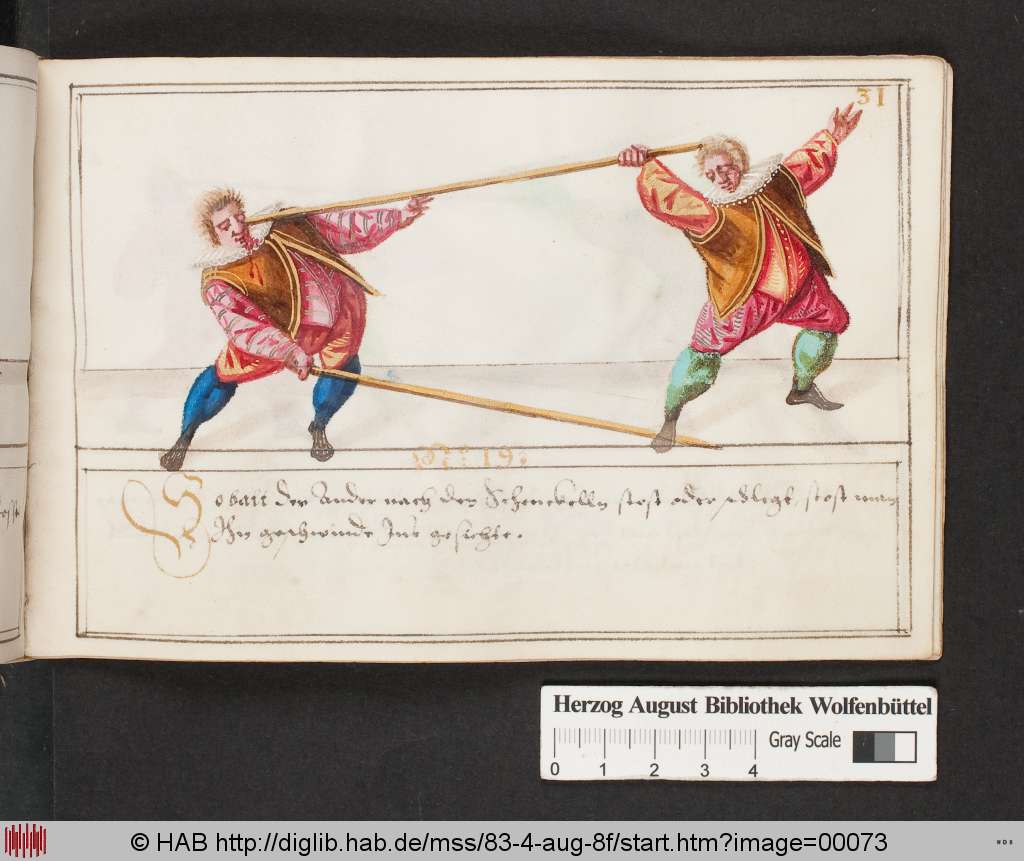 31
19
Sobalt der Ander nach den Schenckelln stost oder schlegt, stost man
Ihn geschwinde Ins gesichte.
Herzog August Bibliothek Wolfenbüttel
Gray Scale
0 1 2 3 4
© HAB http://diglib.hab.de/mss/83-4-aug-8f/start.htm?image=00073